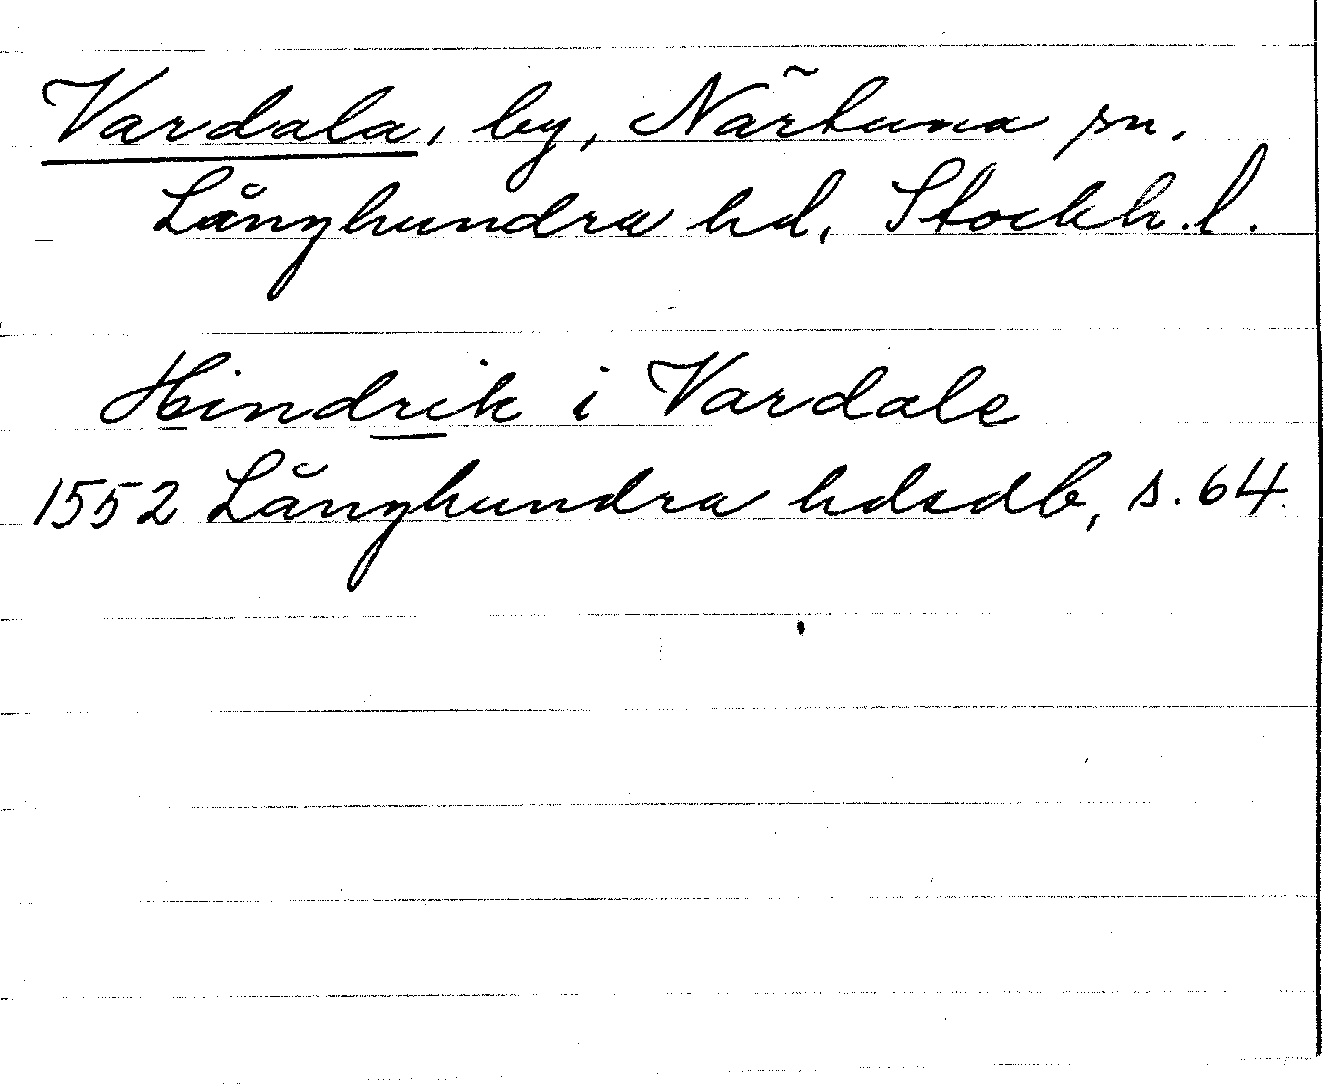 Vardala, by, Närtuna sn.
Långhundra hd, Stockh. l.
Hindrik i Vardale
1552 Långhundra hdsdb, s. 64.